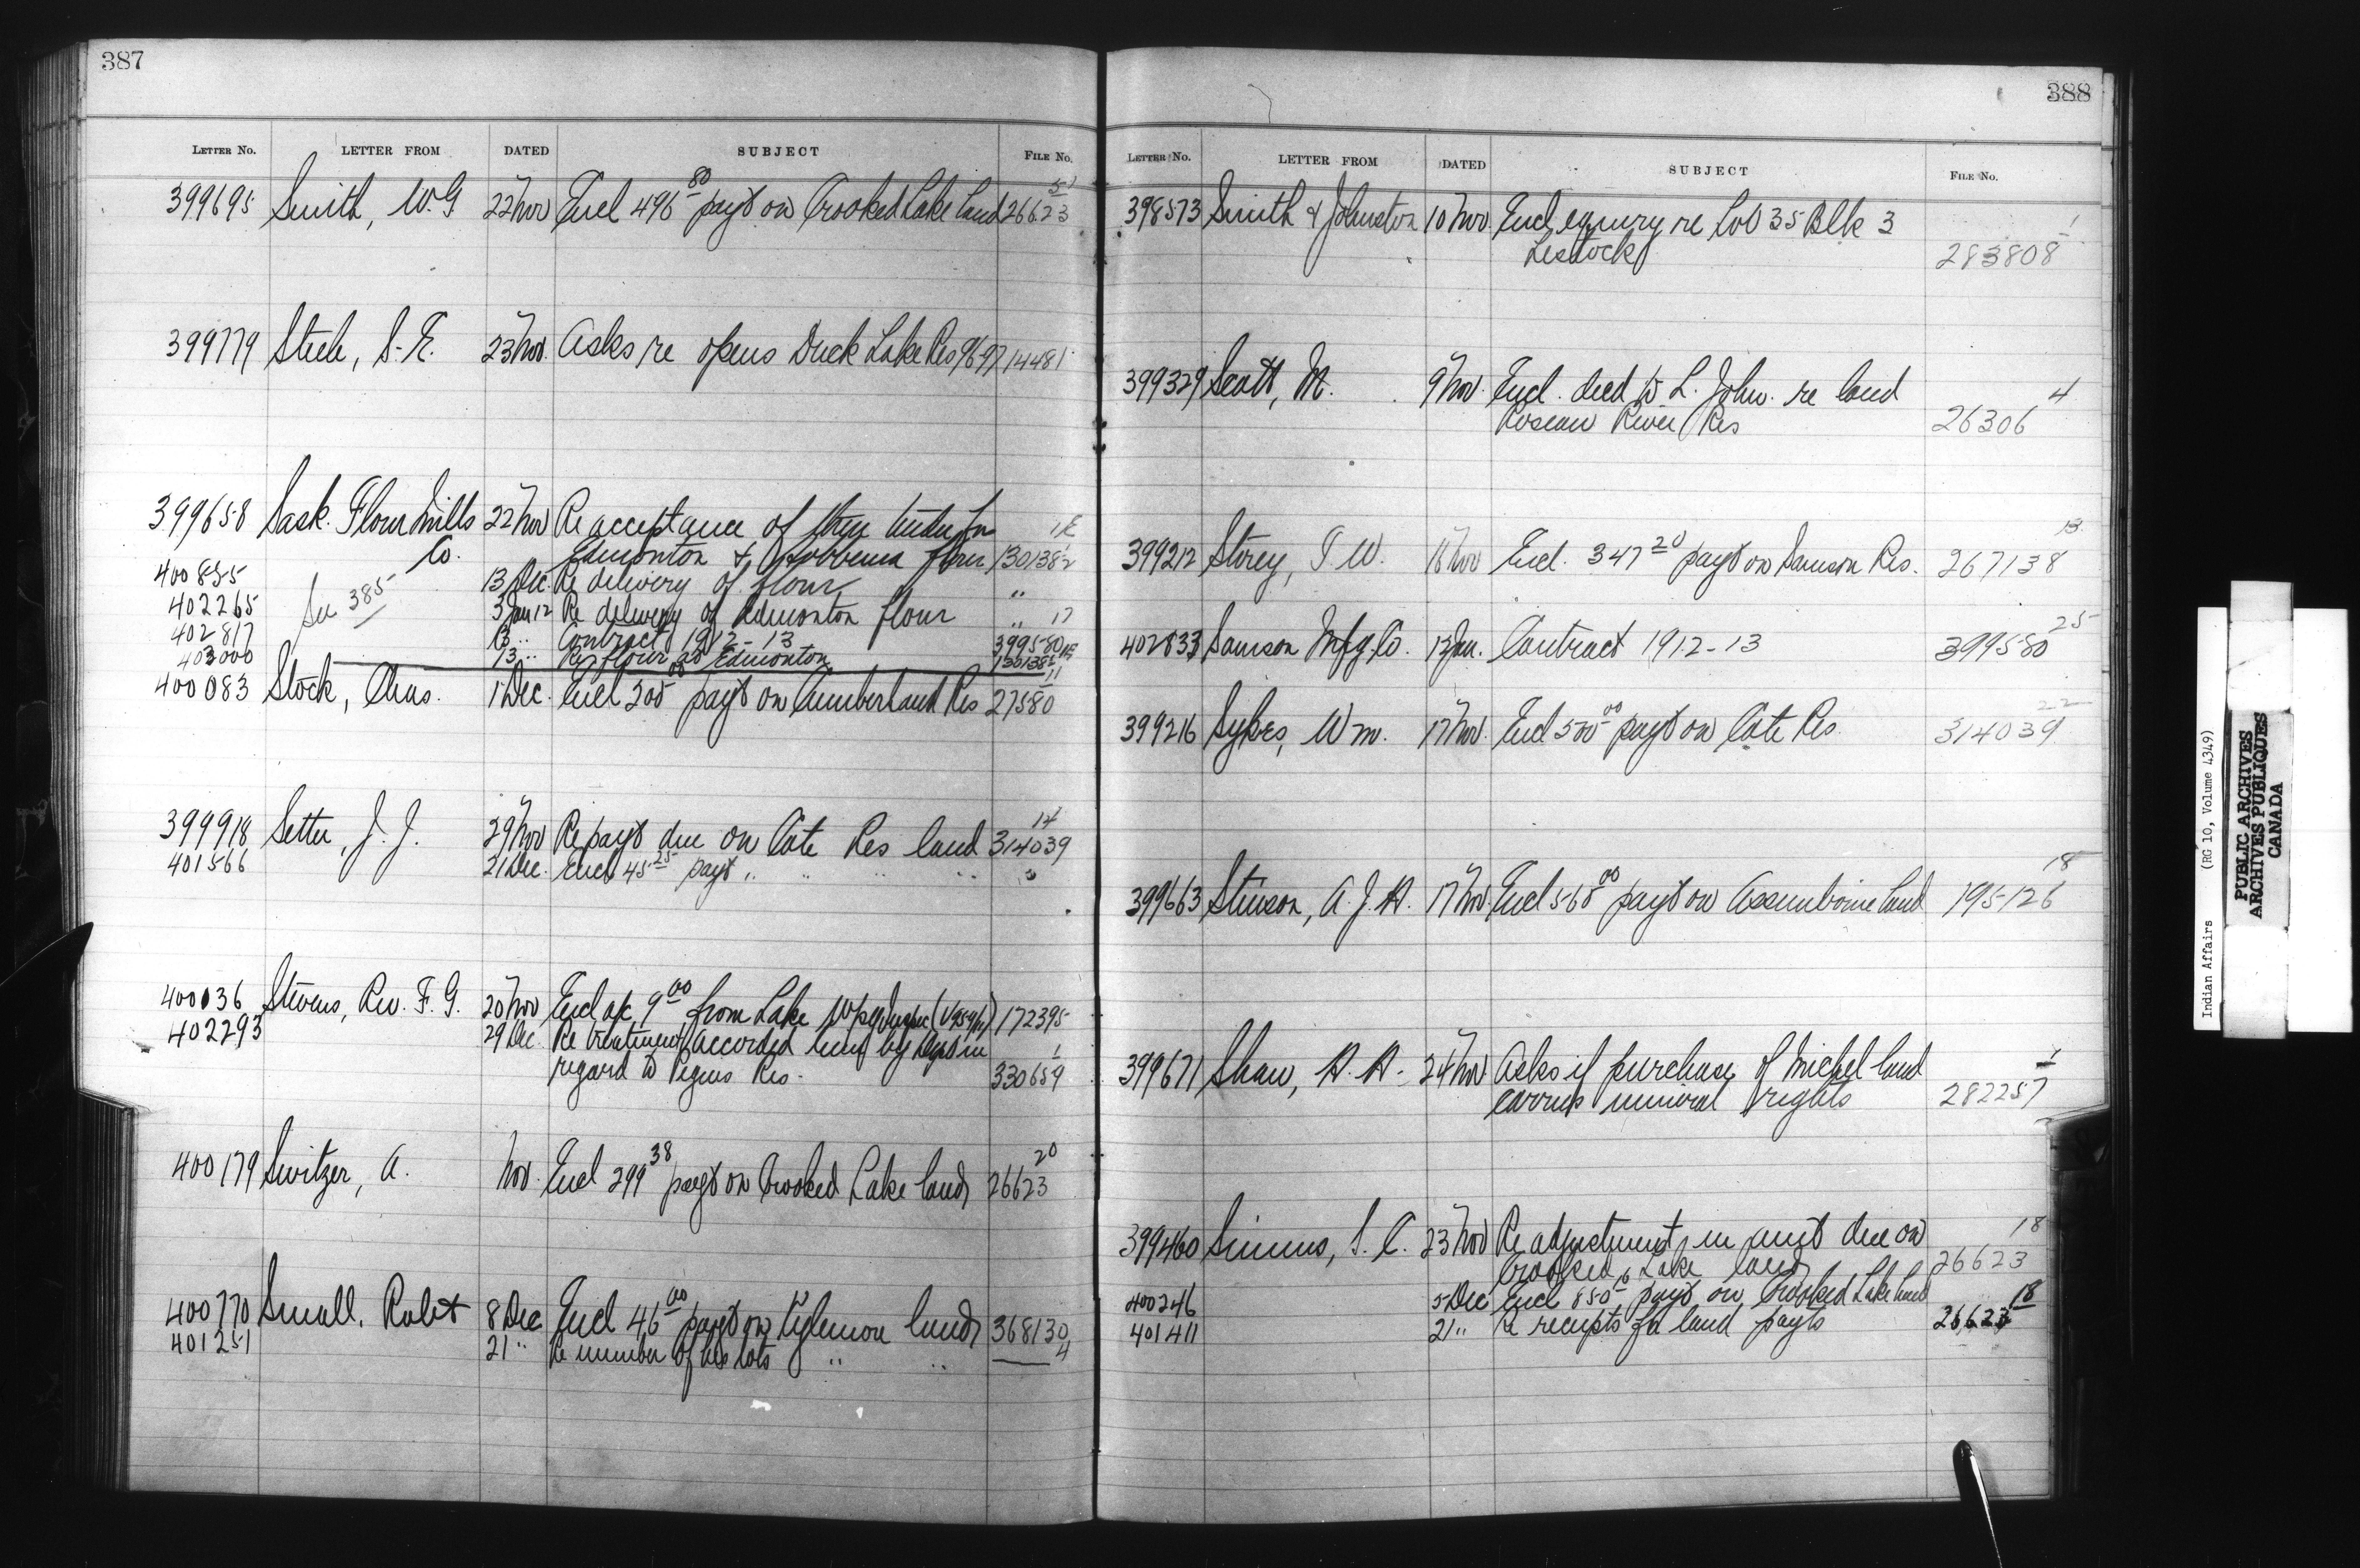 387
LETTER No. LETTER FROM DATED SUBJECT FILE No.
399695 Smith, W.G 22 Nov Encl 496 80 payt on Crooked Lake land 26623 51
399779 Steele, S.E. 23 Nov. Asks re opens Duck Lake Res 96-97 14481
399658 Sask. Flour Mills 22 Nov Re acceptance of their tender for
Co. Edmonton & Hobbema flour 130138 1/2
400835 13 Dec. Re delivery of flour "
402265 See 385 3 Jan 12 Re delivery of Edmonton flour " 17
402817 13 " Contract 1912-13 399580
403000 13 " Re flour at Edmonton 130138
400083 Stock, Chas. 1 Dec. Encl 305 00 payt on Cumberland Res 27580 11
399918 Setter, J. J. 29 Nov Re payt due on Cote Res land 314039 14
401566 21 Dec. Encl 45 25 payt " " " " "
400036 Stevens, Rev. F. G. 20 Nov Encl a/c 9 00 from Lake Wpeg Inspec 172395
402293 29 Dec Re treatment accorded him by Dept in
regard to Peguis Res. 330659 1
400179 Switzer, A. Nov. Encl 299 38 payt on Crooked Lake land 26623 20
400770 Small, Robt 8 Dec Encl 46 00 payt on Kylemore land 368130
401251 21 " Re number of his lots " " 4
388
LETTER No. LETTER FROM DATED SUBJECT FILE No.
398573 Smith & Johnston 10 Nov. Encl enquiry re Lot 35 Blk 3
Lestock 283808 1
399329 Scott, M. 9 Nov. Encl. deed to L. John. re land
Roseau River Res 26306 4
399212 Storey, T. W. 18 Nov Encl. 347 20 payt on Samson Res. 267138 13
402833 Samson Mfg. Co. 12 Jan. Contract 1912-13 399580 25
399216 Sykes, Wm. 17 Nov. Encl 500 00 payt on Cote Res. 314039 22
399663 Stinson, A. J. H. 17 Nov. Encl 568 00 payt on Assiniboine land 195126 18
399671 Shaw, H. H. 24 Nov Asks if purchase of Michel land
carries mineral rights 282257 1
399460 Simms, S. C. 23 Nov Re adjustment in amt due on
Crooked Lake land 26623 18
400246 5 Dec Encl 850 16 payt on Crooked Lake land
401411 21 " Re receipts for land payts 26623 18
Indian Affairs (RG 10, Volume 4349)
PUBLIC ARCHIVES
ARCHIVES PUBLIQUES
CANADA